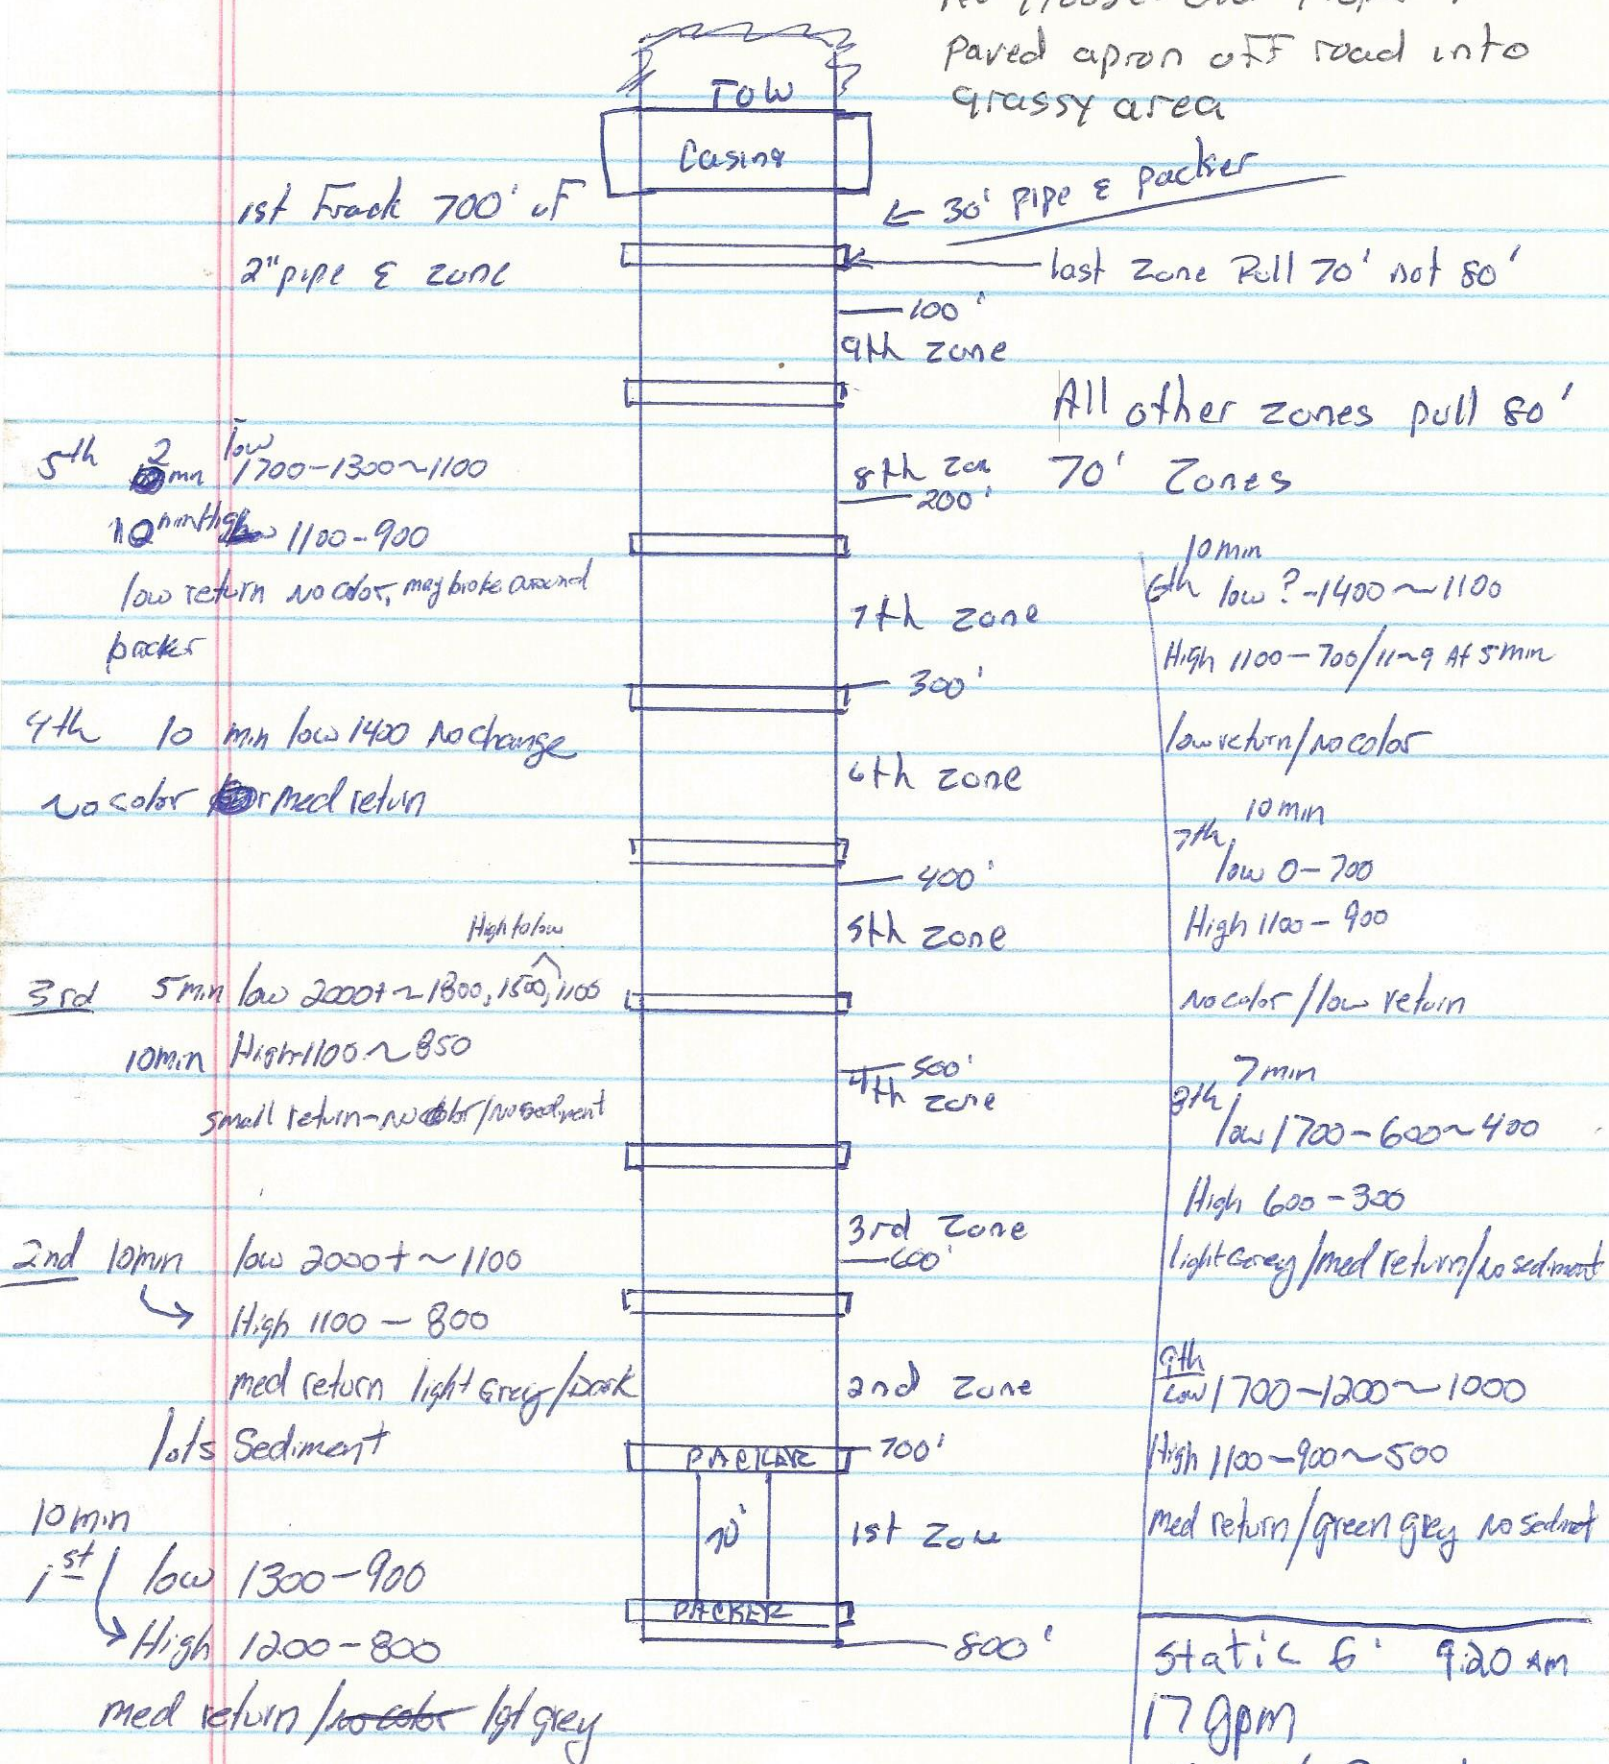 paved apron off road into
grassy area
TOW
Casing
1st Frack 700' of
2" pipe & zone
← 30' pipe & packer
last zone Pull 70' not 80'
100'
9th zone
All other zones pull 80'
70' Zones
8th Zon
200'
7th zone
300'
6th zone
400'
5th zone
500'
4th zone
3rd Zone
600'
2nd Zone
PACKER
700'
70'
1st Zone
PACKER
800'
5th 2 mn low 1700-1300~1100
10 min High 1100-900
low return no color, may broke around
packer
4th 10 min low 1400 No change
No color med return
High to low
3rd 5 min low 2000+ ~ 1800, 1500, 1100
10 min High 1100 ~ 850
small return - no color/no sediment
2nd 10 min low 2000+ ~ 1100
High 1100 - 800
med return light Grey/Dark
lots Sediment
10 min
1st low 1300-900
High 1200-800
med return / no color lgt grey
10 min
6th low ? -1400 ~ 1100
High 1100-700/11~9 At 5 min
low return/no color
10 min
7th
low 0-700
High 1100-900
No color/low return
7 min
8th
low 1700-600~400
High 600-300
light Grey/med return/no sediment
9th
Low 1700-1200~1000
High 1100-900~500
med return/green grey no sedmet
Static 6' 9:20 AM
17 gpm